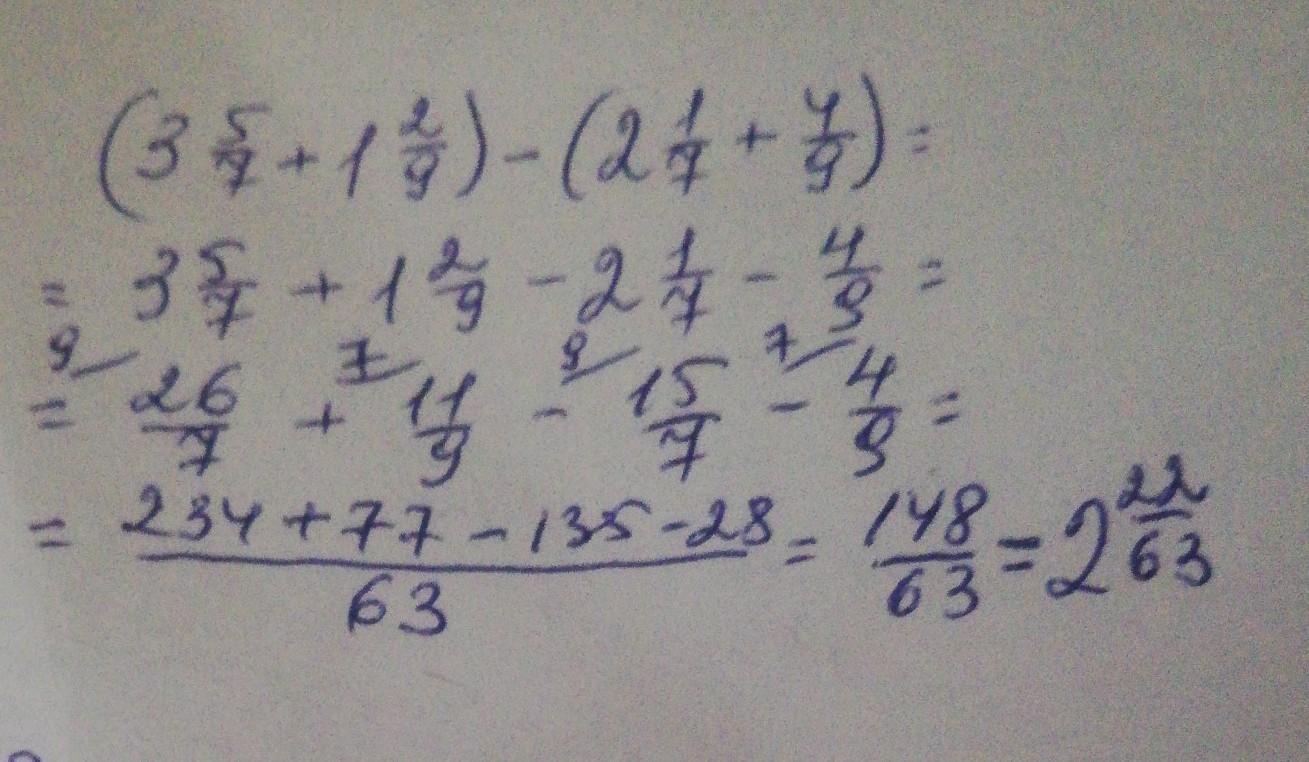 (3 5/7 + 1 2/9) - (2 1/7 + 4/9) =
= 3 5/7 + 1 2/9 - 2 1/7 - 4/9 =
9 7 9 7
= 26/7 + 11/9 - 15/7 - 4/9 =
= (234 + 77 - 135 - 28)/63 = 148/63 = 2 22/63